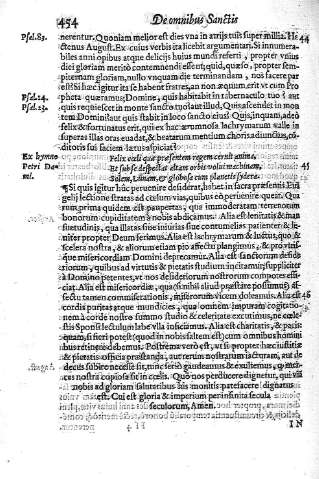 454 De omnibus Sanctis
Psal. 83. nerentur. Quoniam melior est dies vna in atrijs tuis super millia. Hæc 44
ctenus August. Ex cuius verbis ita licebit argumentari. Si innumera-
biles anni opibus atque delicijs huius mundi referti, propter vnius
diei gloriam merito contemnendi essent; quid, quæso, propter sem-
piternam gloriam, nullo vnquam die terminandam, nos facere par
esset? hæc igitur ita se habent fratres, an non æquum erit vt cum Pro
Psal. 14. pheta quæramus, Domine, quis habitabit in tabernaculo tuo? aut
Psal. 23. quis requiescet in monte sancto tuo? aut illud, Quis ascendet in mon
tem Domini, aut quis stabit in loco sancto eius? Quis, inquam, adeò
felix & fortunatus erit, qui ex hac ærumnosa lachrymarum valle in
superas illas oras euadat, & beatarum mentium choris adiunctus, co-
ditoris sui faciem lætus aspiciat?
Ex hymno Felix cœli quæ præsentem regem cernit anima,
Petri Da Et subse despectat altam orbis volui machinam, 45
mi. Solem, Lunam, & globosa cum planetis sydera.
¶ Si quis igitur huc peruenire desiderat, habet in sacra præsentis Euā
gelij lectione stratas ad cœlum vias, quibus eò peruenire queat. Qua
rum prima quidem est paupertas, qua immoderatam terrenorum
bonorum cupiditatem à nobis abdicamus. Alia est lenitatis & man
suetudinis, qua illatas siue iniurias siue contumelias patienter & le-
niter propter Deum ferimus. Alia est lachrymarum & luctus, quo &
scelera nostra, & aliorum etiam pio affectu plangimus, & pro vtris-
que misericordiam Domini deprecamur. Alia est sanctorum deside
riorum, quibus ad virtutis & pietatis studium incitamur, suppliciter
à Domino petentes, vt nos desideriorum nostrorum compotes effi-
ciat. Alia est misericordiæ, qua (si nihil aliud præstare possumus) af-
fectu tamen commiserationis, miserorum vicem doleamus. Alia est 46
cordis puritas atque mundicies, qua omnem impuram cogitatio-
nem à corde nostro summo studio & celeritate excutimus, ne cœle-
stis Sponsi lectulum labe vlla inficiamus. Alia est charitatis, & pacis:
quam, si fieri potest (quod in nobis saltem est) cum omnibus homini
bus retinere debemus. Postrema verò est, vt si propter hæc iustitiæ
& pietatis officia præstanda, aut rerum nostrarum iacturam, aut de
decus subire necesse sit, tunc seriò gaudeamus & exultemus, q̃ mer-
ces nostra copiosa sit in cœlis. Quò nos perducere dignetur, qui viā
nobis ad gloriam salutaribus his monitis patefacere dignatus
est. Cui est gloria & imperium per infinita secula
seculorum, Amen.
IN